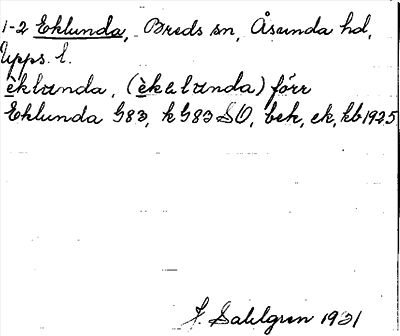 1-2 Eklunda, Breds sn, Åsunda hd,
Upps. l.
èklunda, (èkalunda) förr
Eklunda G83, kG83 SO, bek, ek, kb1925
J. Sahlgren 1931